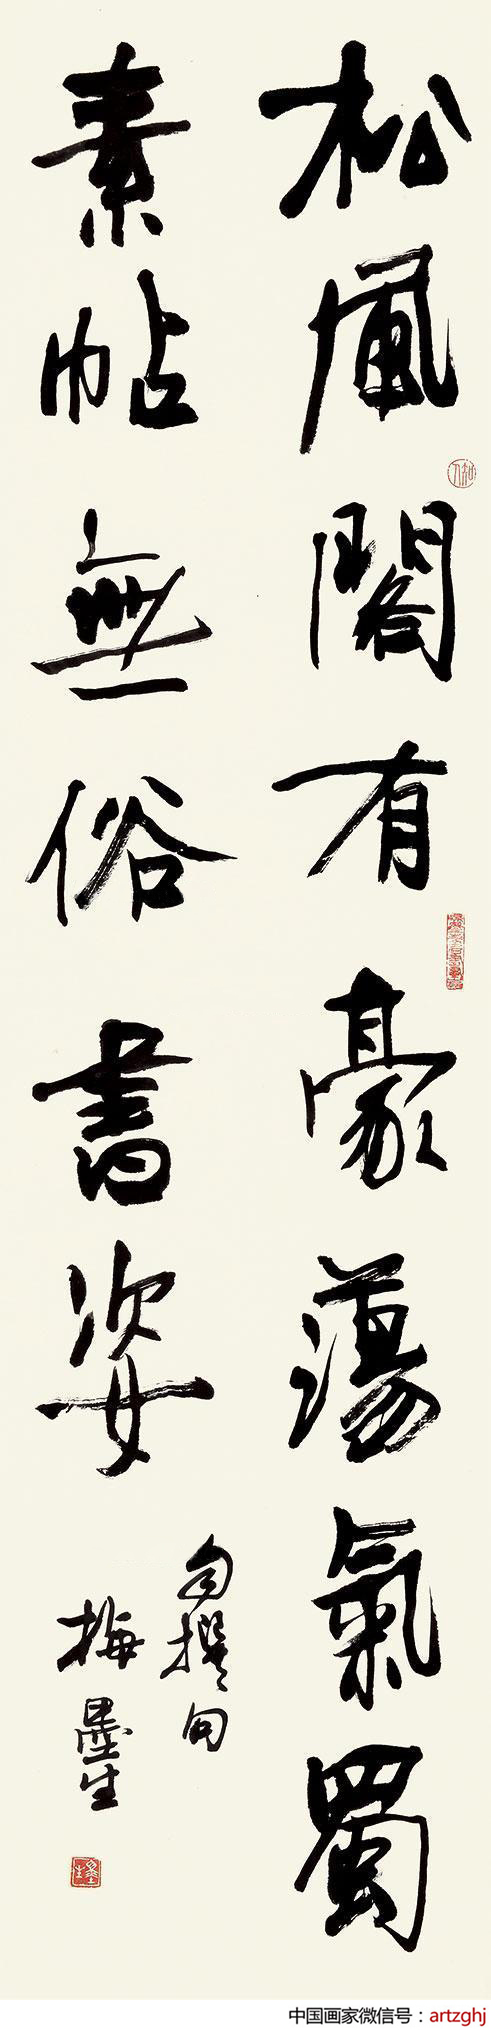 松風閣有豪蕩氣蜀
素帖無俗書姿
自撰句
梅墨生
中国画家微信号：artzghj